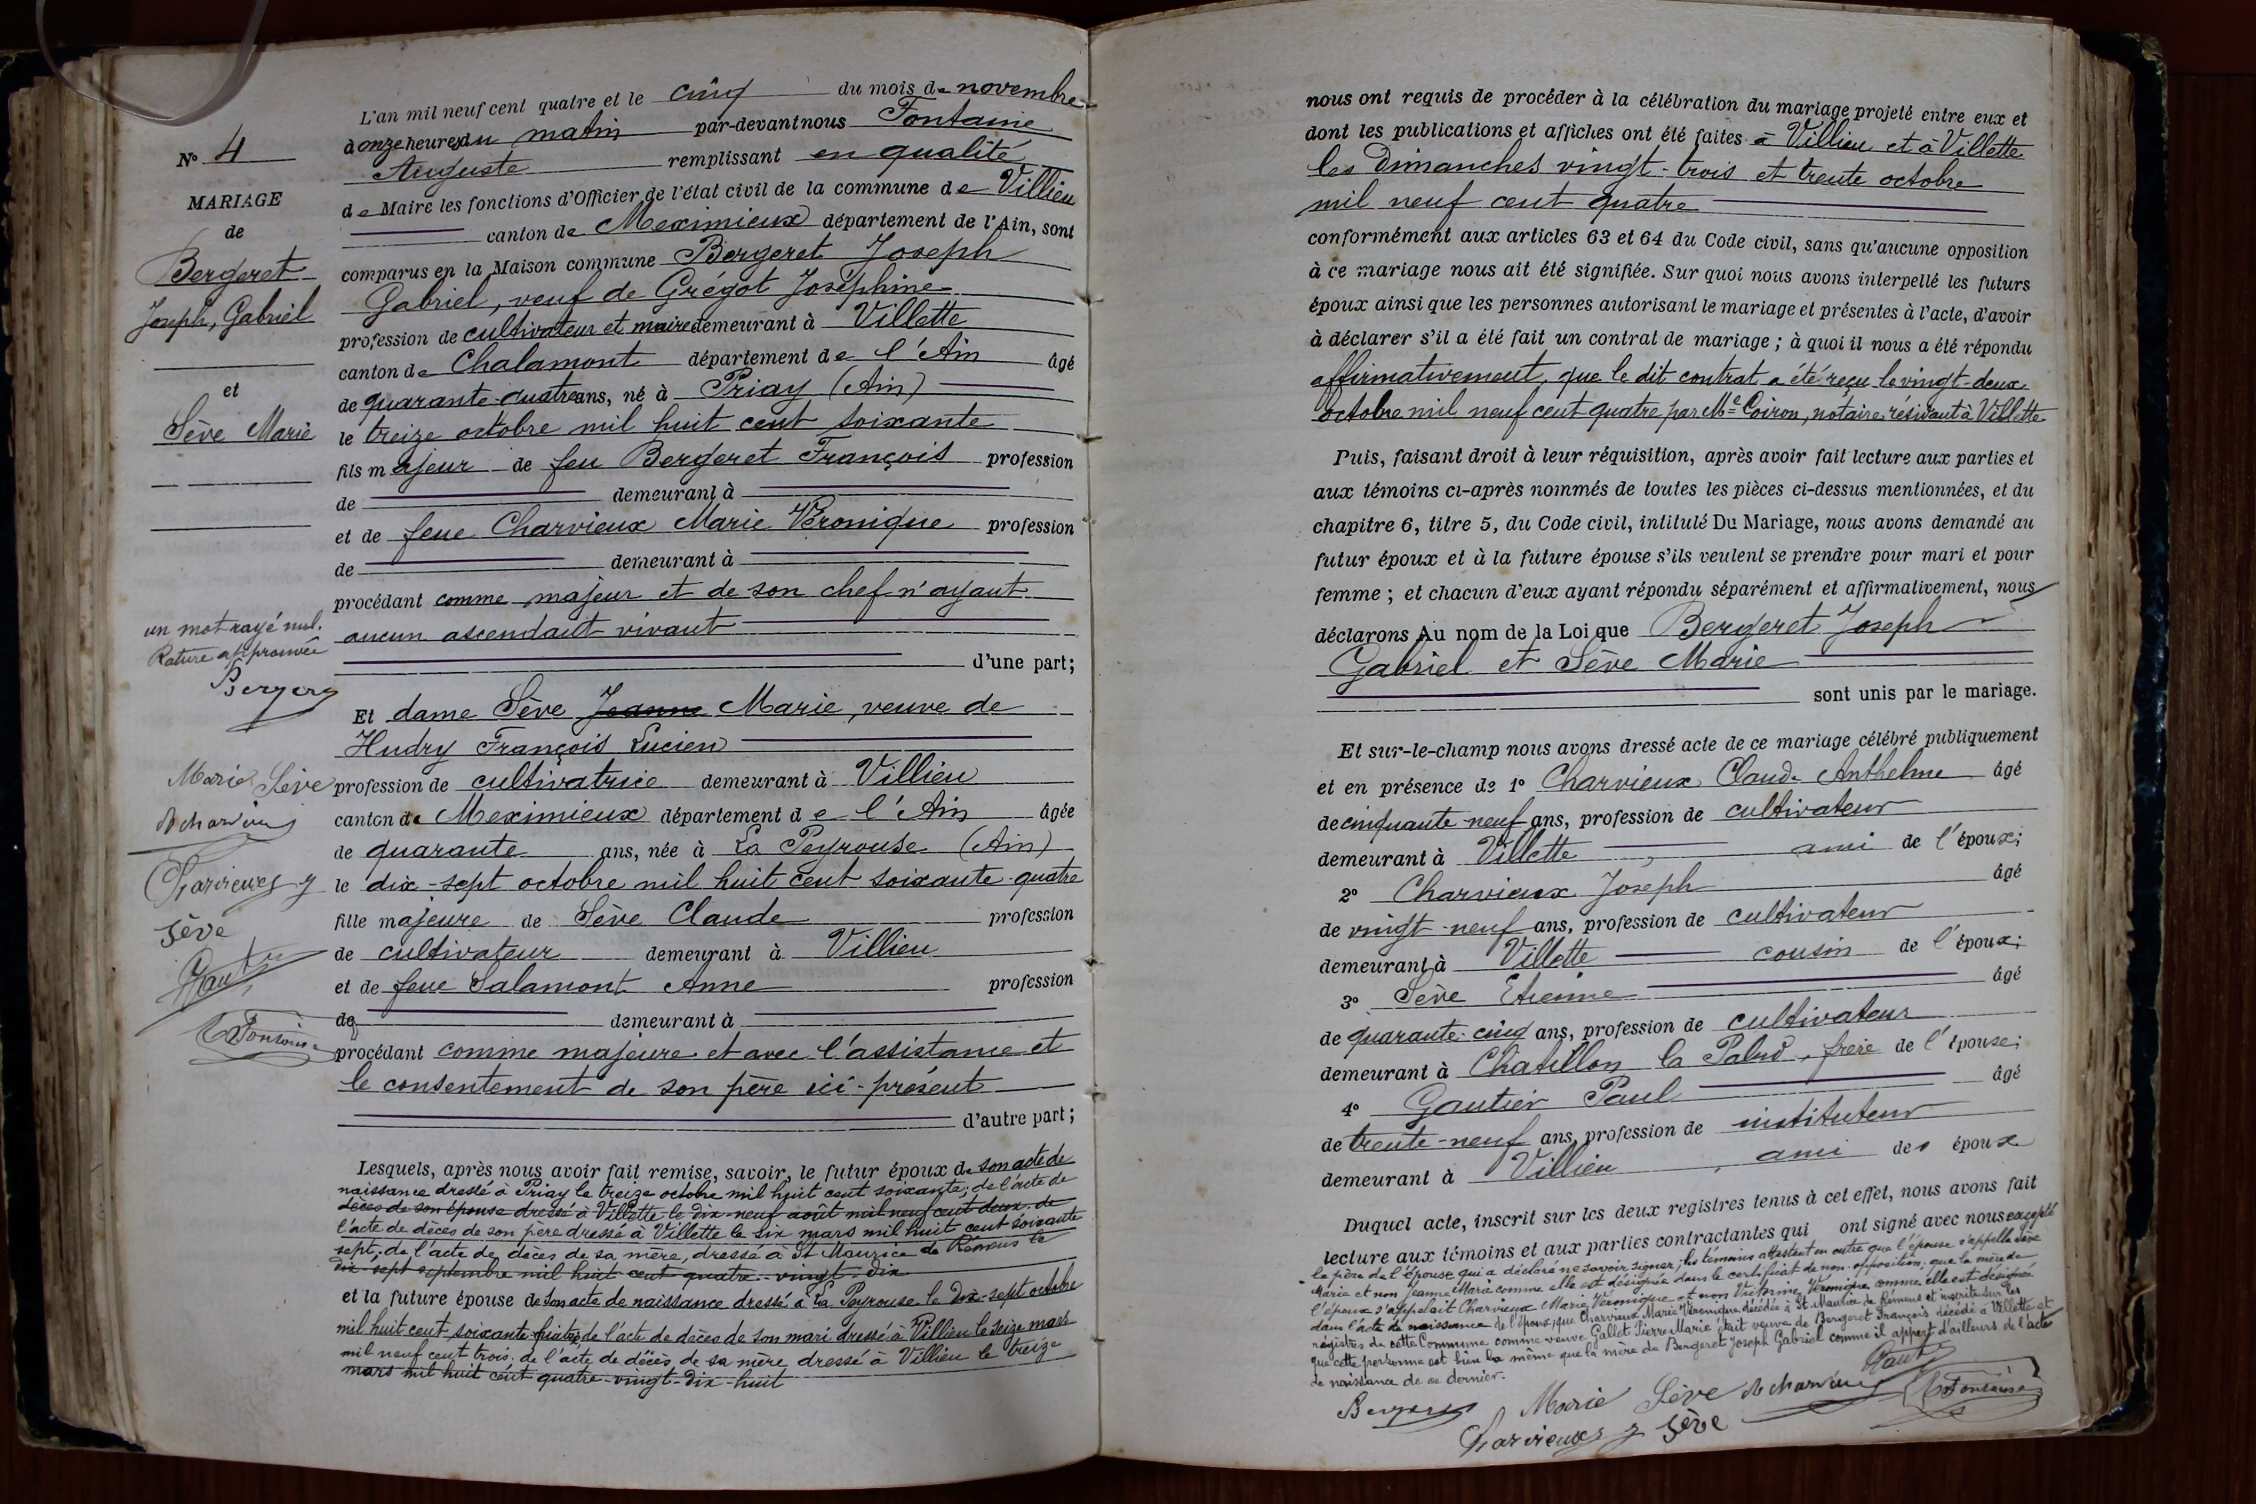 N° 4
MARIAGE
de
Bergeret
Joseph, Gabriel
et
Sève Marie
un mot rayé nul.
Rature approuvée
Bergeret
Marie Sève
Charvieux
Sève
Fontaine
L'an mil neuf cent quatre et le cinq du mois de novembre
à onze heures du matin par-devant nous Fontaine
Auguste remplissant en qualité
de Maire les fonctions d'Officier de l'état civil de la commune de Villieu
canton de Meximieux département de l'Ain, sont
comparus en la Maison commune Bergeret Joseph
Gabriel, veuf de Grégot Joséphine
profession de cultivateur et maire demeurant à Villette
canton de Chalamont département de l'Ain âgé
de quarante-quatre ans, né à Priay (Ain)
le treize octobre mil huit cent soixante
fils majeur de feu Bergeret François profession
de demeurant à
et de feue Charvieux Marie Véronique profession
de demeurant à
procédant comme majeur et de son chef n'ayant
aucun ascendant vivant
d'une part;
Et dame Sève Jeanne Marie, veuve de
Hudry François Lucien
profession de cultivatrice demeurant à Villieu
canton de Meximieux département de l'Ain âgée
de quarante ans, née à La Peyrouse (Ain)
le dix-sept octobre mil huit cent soixante-quatre
fille majeure de Sève Claude profession
de cultivateur demeurant à Villieu
et de feue Salamont Anne profession
de demeurant à
procédant comme majeure et avec l'assistance et
le consentement de son père ici-présent
d'autre part;
Lesquels, après nous avoir fait remise, savoir, le futur époux de son acte de
naissance dressé à Priay le treize octobre mil huit cent soixante; de l'acte de
décès de son épouse dressé à Villette le dix-neuf août mil neuf cent deux. de
l'acte de décès de son père dressé à Villette le six mars mil huit cent soixante
sept; de l'acte de décès de sa mère, dressé à St Maurice de Rémens le
dix-sept septembre mil huit cent quatre-vingt-dix
et la future épouse de son acte de naissance dressé à La Peyrouse le dix-sept octobre
mil huit cent soixante-quatre, de l'acte de décès de son mari dressé à Villieu le seize mars
mil neuf cent trois; de l'acte de décès de sa mère dressé à Villieu le treize
mars mil huit cent quatre-vingt-dix-huit
nous ont requis de procéder à la célébration du mariage projeté entre eux et
dont les publications et affiches ont été faites à Villieu et à Villette
les Dimanches vingt-trois et trente octobre
mil neuf cent quatre
conformément aux articles 63 et 64 du Code civil, sans qu'aucune opposition
à ce mariage nous ait été signifiée. Sur quoi nous avons interpellé les futurs
époux ainsi que les personnes autorisant le mariage et présentes à l'acte, d'avoir
à déclarer s'il a été fait un contrat de mariage; à quoi il nous a été répondu
affirmativement, que le dit contrat a été reçu le vingt-deux
octobre mil neuf cent quatre par Me Coiron, notaire résidant à Villette
Puis, faisant droit à leur réquisition, après avoir fait lecture aux parties et
aux témoins ci-après nommés de toutes les pièces ci-dessus mentionnées, et du
chapitre 6, titre 5, du Code civil, intitulé Du Mariage, nous avons demandé au
futur époux et à la future épouse s'ils veulent se prendre pour mari et pour
femme; et chacun d'eux ayant répondu séparément et affirmativement, nous
déclarons Au nom de la Loi que Bergeret Joseph
Gabriel et Sève Marie
sont unis par le mariage.
Et sur-le-champ nous avons dressé acte de ce mariage célébré publiquement
et en présence de 1° Charvieux Claude Anthelme âgé
de cinquante-neuf ans, profession de cultivateur
demeurant à Villette, ami de l'époux;
2° Charvieux Joseph âgé
de vingt-neuf ans, profession de cultivateur
demeurant à Villette cousin de l'époux;
3° Sève Etienne âgé
de quarante-cinq ans, profession de cultivateur
demeurant à Chatillon la Palud, frère de l'épouse;
4° Gautier Paul âgé
de trente-neuf ans, profession de instituteur
demeurant à Villieu, ami des époux
Duquel acte, inscrit sur les deux registres tenus à cet effet, nous avons fait
lecture aux témoins et aux parties contractantes qui ont signé avec nous excepté
le père de l'épouse qui a déclaré ne savoir signer; les témoins attestent en outre que l'épouse s'appelle Sève
Marie et non Jeanne Marie comme elle est désignée dans le certificat de non-opposition; que la mère de
l'époux s'appelait Charvieux Marie Véronique et non Victorine Véronique comme elle est désignée
dans l'acte de naissance de l'époux; que Charvieux Marie Véronique décédée à St Maurice de Rémens et inscrite sur les
registres de cette Commune comme veuve Gallet Pierre Marie était veuve de Bergeret François décédé à Villette et
que cette personne est bien la même que la mère de Bergeret Joseph Gabriel comme il appert d'ailleurs de l'acte
de naissance de ce dernier.
Bergeret Marie Sève Charvieux Fontaine
Charvieux J Sève